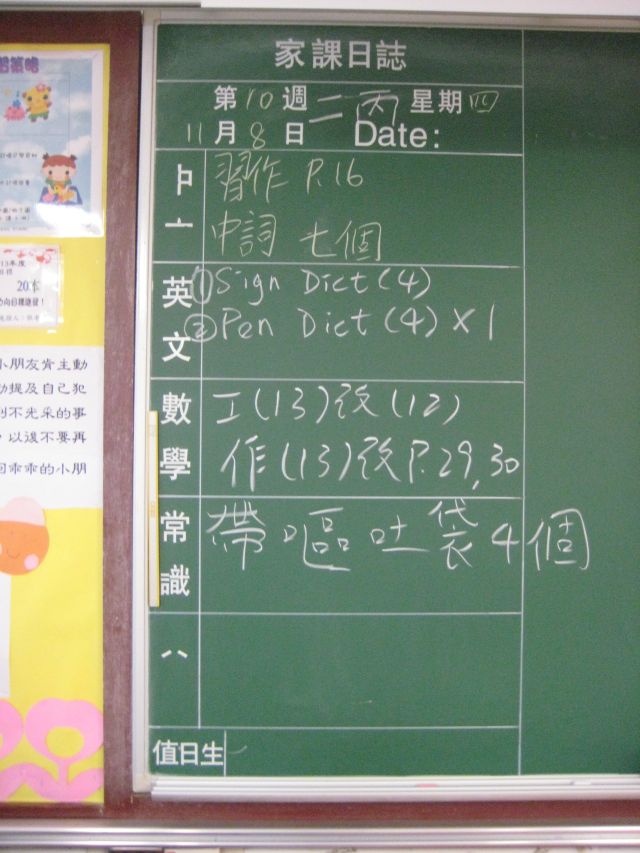 家課日誌
第10週 二丙 星期四
11月8日 Date:
習作 P.16
中詞 七個
英文
①Sign Dict(4)
②Pen Dict(4)×1
數學
工(13)改(12)
作(13)改P.29,30
常識
帶嘔吐袋4個
值日生
20本
小朋友肯主動
動提及自己犯
到不光采的事
，以後不要再
回乖乖的小朋